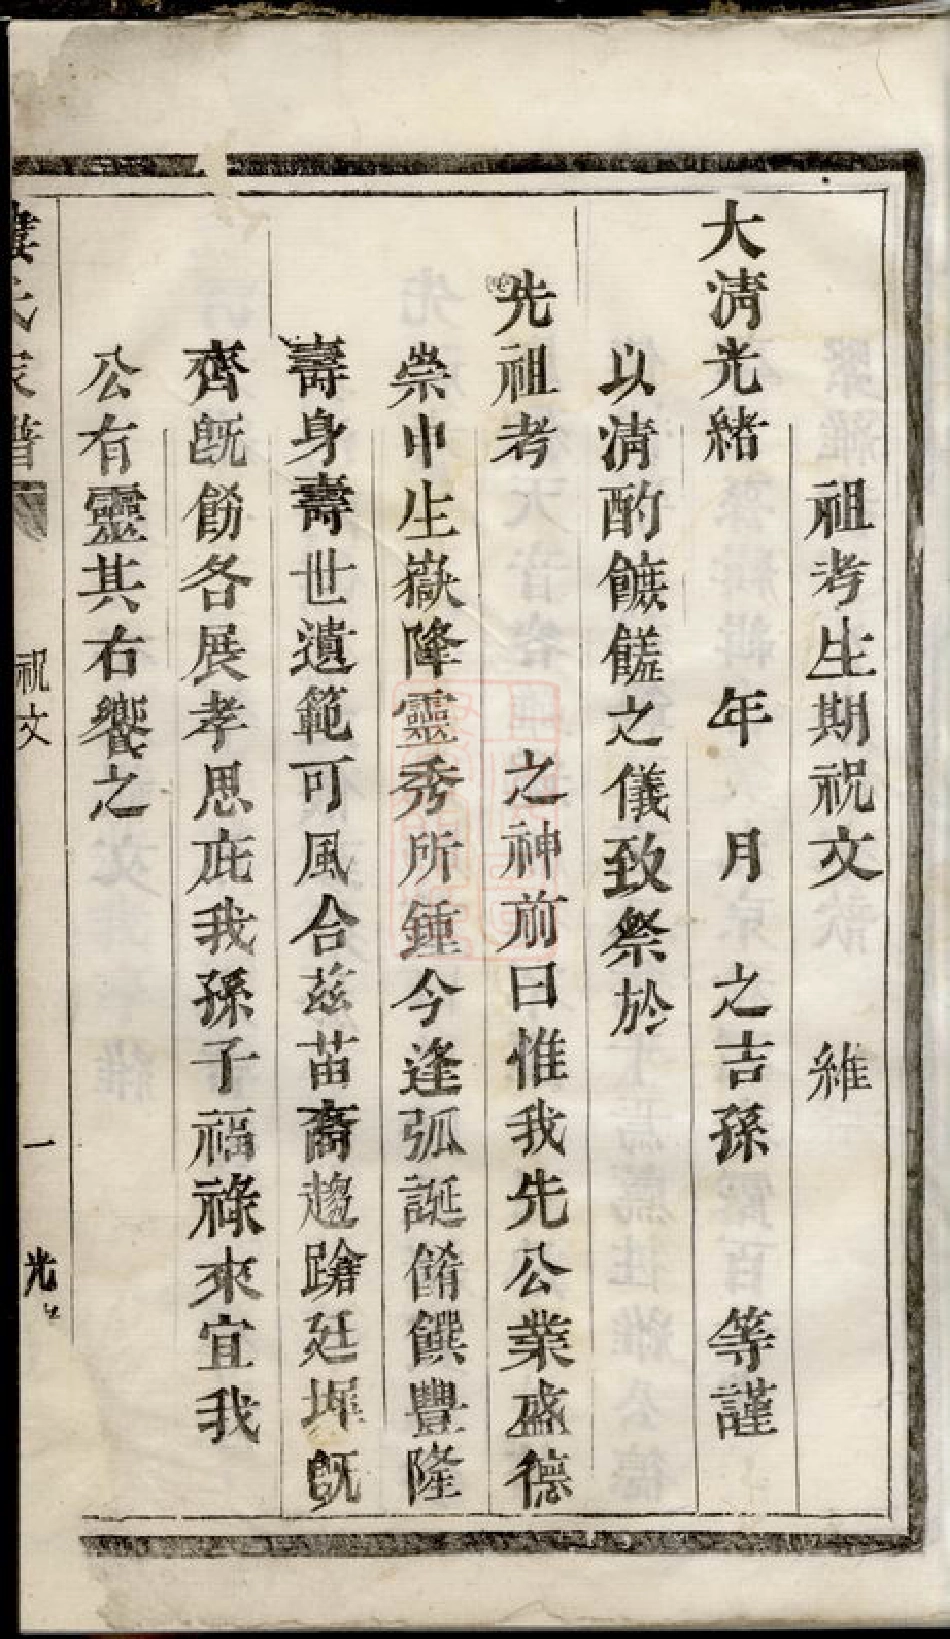 祖考生期祝文　維
大清光緒　年　月　之吉孫　等謹
以清酌饝饈之儀致祭於
先祖考　之神前曰惟我先公業盛德
崇申生嶽降靈秀所鍾今逢弧誕餚饌豐隆
壽身壽世遺範可風合茲苗裔趨蹌廷墀旣
齊旣飭各展孝思庇我孫子福祿來宜我
公有靈其右饗之
氏家譜　祝文　一　光